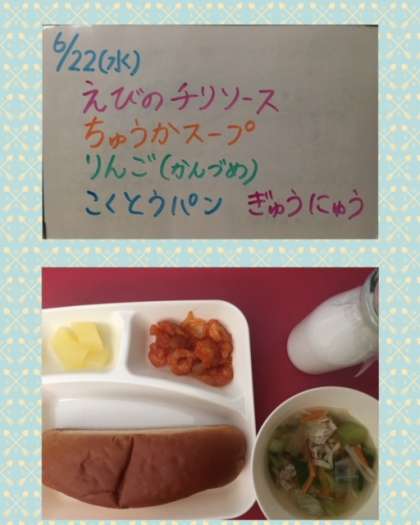 6/22(水)
えびのチリソース
ちゅうかスープ
りんご(かんづめ)
こくとうパン ぎゅうにゅう